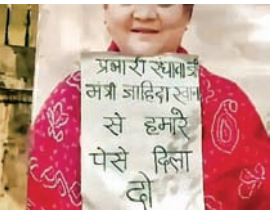 प्रभारी
मंत्री जाहिदा खान
से हमारे
पैसे दिला
दो